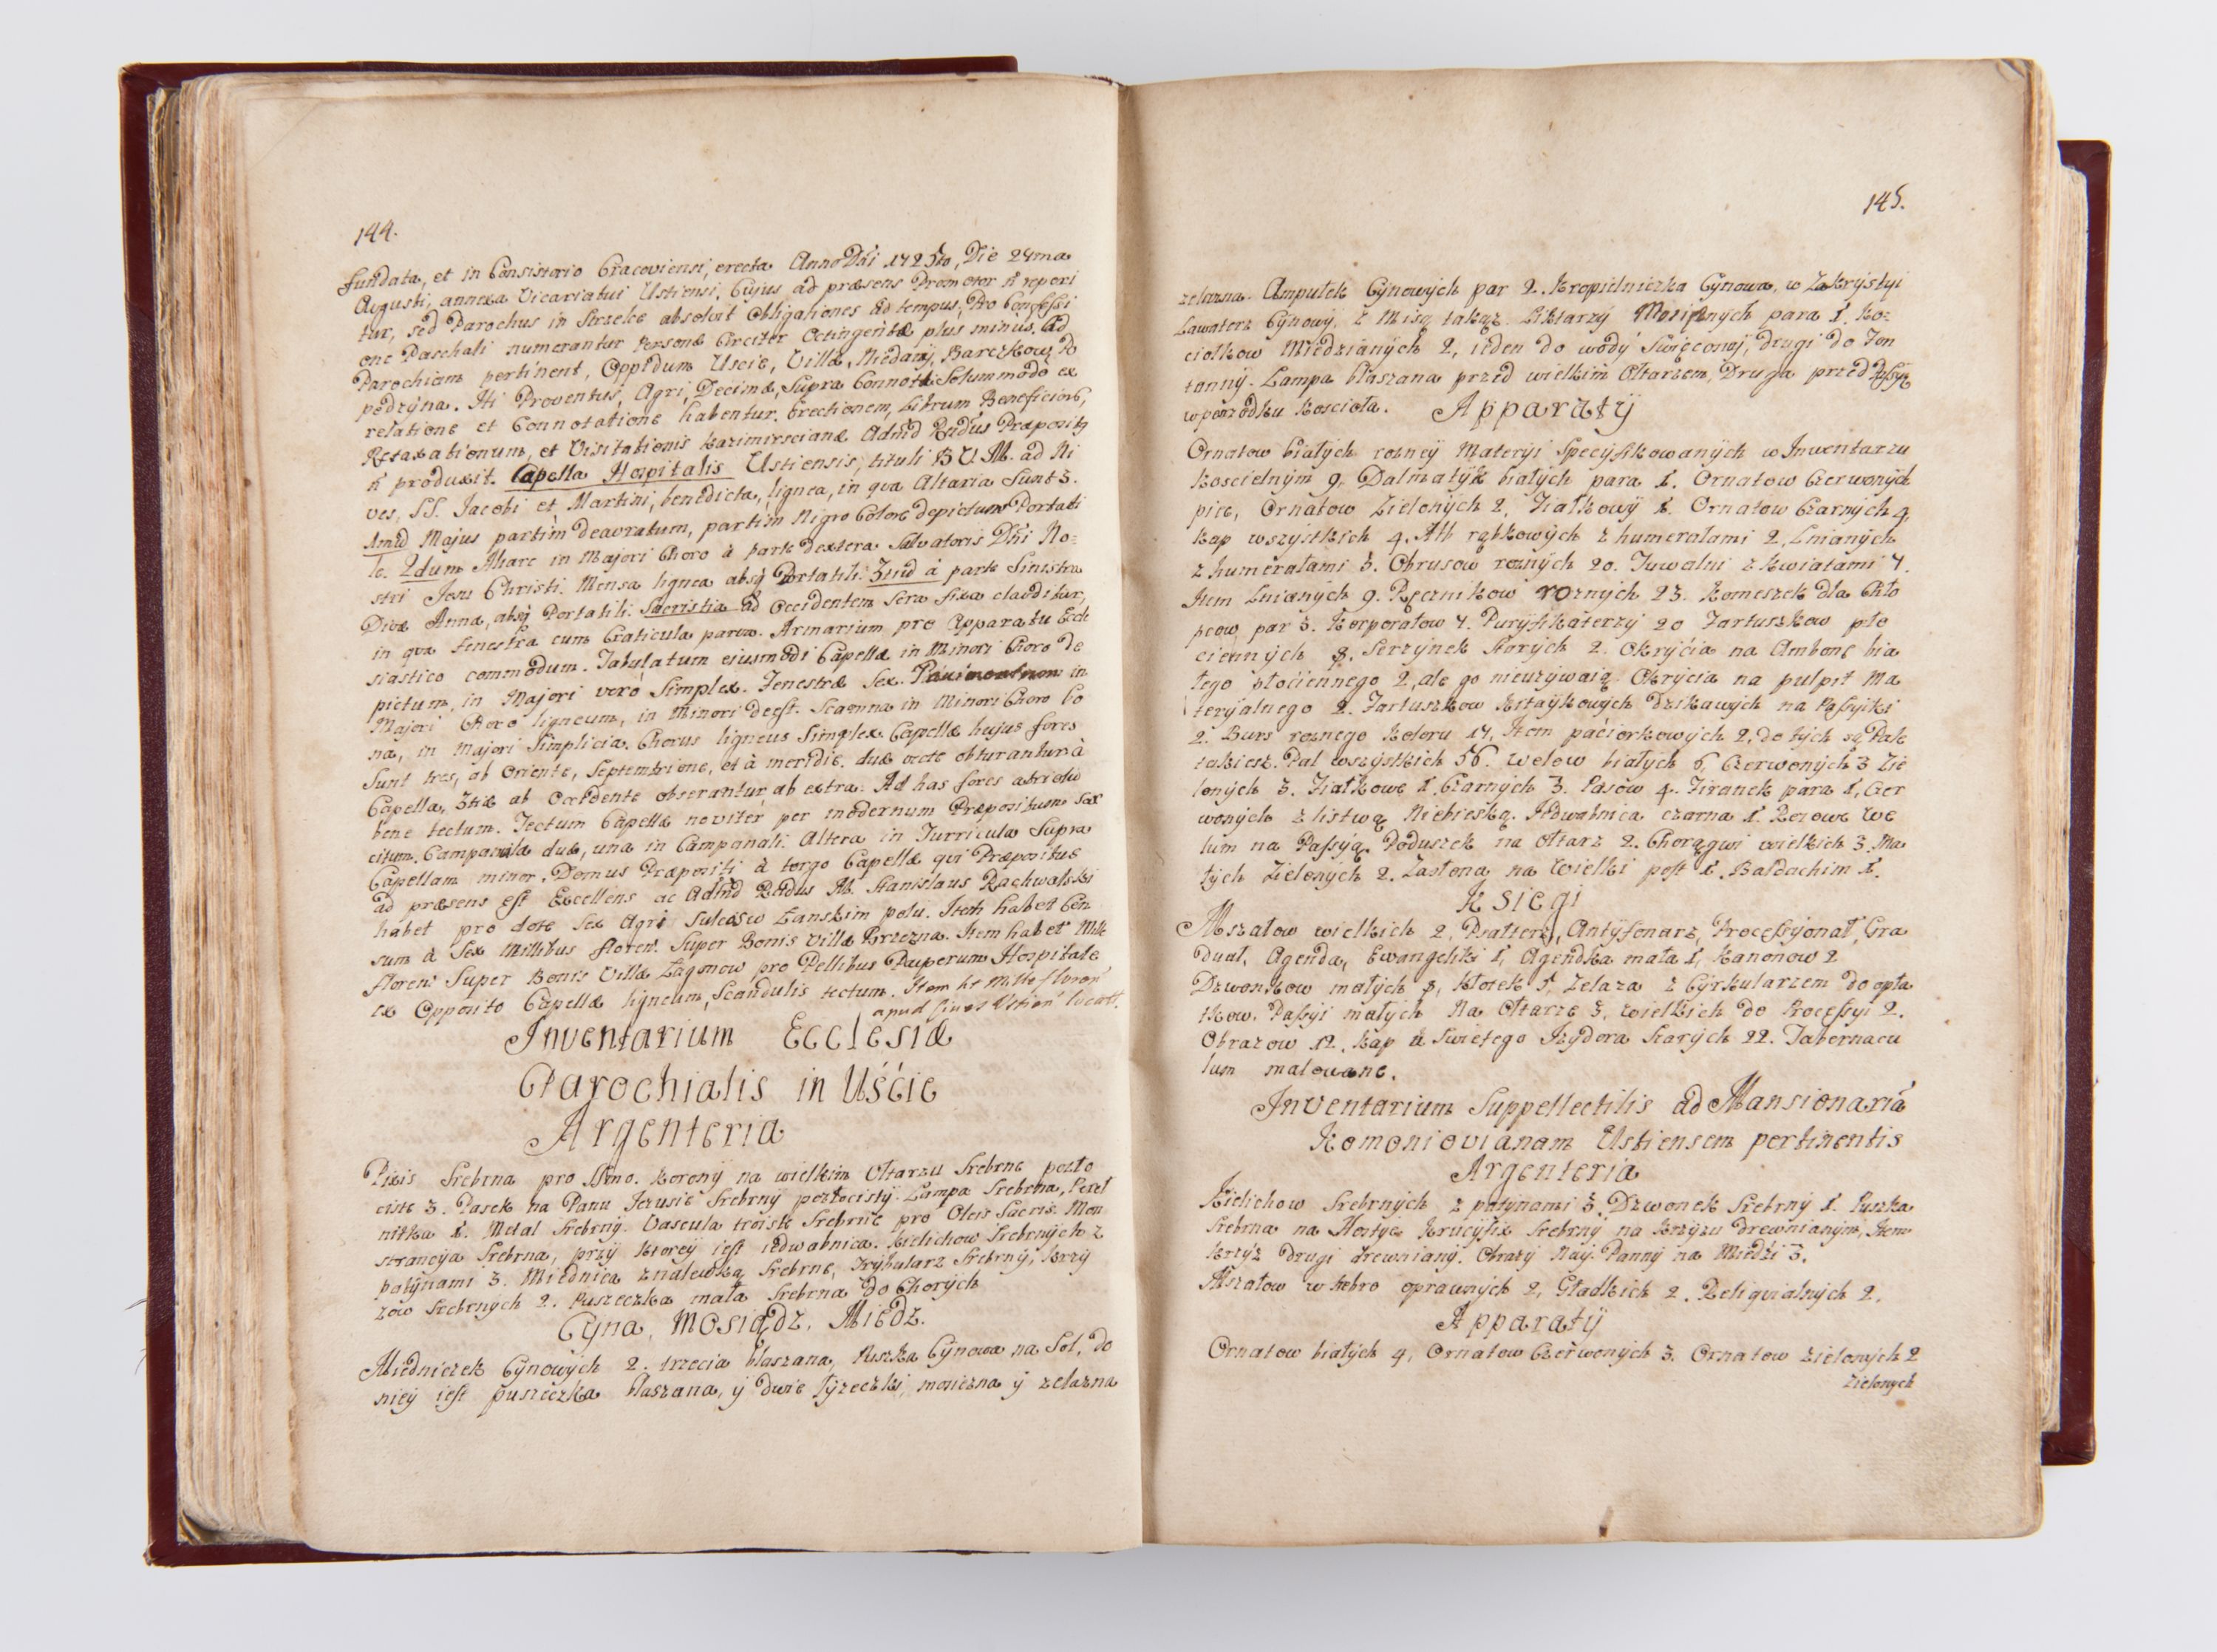 144.
fundata, et in Consistorio Cracoviensi, erecta Anno Dni 1725to, Die 27ma
Augusti, annexa Vicariatui Ustiensi, Cujus ad præsens Promotor ñ reperi
tur, sed Parochus in Strzelce absolvit Obligationes ad tempus, Pro Confessi
one Paschali numerantur Personæ Circiter Octingentæ plus minus. Ad
Parochiam pertinent, Oppidum Uscie, Villæ, Niedary, Barczkow, Po
pędzyna. Iti Proventus, Agri, Decimæ, Supra Connotæ Solummodo ex
relatione et Connotatione habentur. Erectionem, Librum Beneficiorũ,
Retaxationum, et Visitationis Kazimirscianæ Admd Rndus Præpositq
ñ produxit. Capella Hospitalis Ustiensis, tituli B V. M. ad Ni
ves, SS. Jacobi et Martini, benedicta, lignea, in qva Altaria Sunt 3.
1mum Majus partim deavratum, partim Nigro Colore depictum Portati
le. 2dum Altare in Majori Choro à parte dextera Salvatoris Dñi No-
stri Jesu Christi. Mensa lignea absq Portatili. 3tiũ à parte Sinistra
Divæ Annæ, absq Portatili. Sacristia ad Occidentem Sera fixa clauditur,
in qva Fenestra cum Craticula parva. Armarium pro Apparatu Eccle
siastico commodum. Tabulatum ejusmodi Capellæ in Minori Choro de
pictum, in Majori verò Simplex. Fenestræ Sex. Pavimentum in
Majori Choro ligneum, in Minori deest. Scamna in Minori Choro bo
na, in Majori Simplicia. Chorus ligneus Simplex. Capellæ hujus fores
Sunt tres, ab Oriente, Septemtrione, et à meridie. duæ arcte obturantur à
Capella, 3tiæ ab Occidente obserantur ab extra. Ad has fores atriolũ
bene tectum. Tectum Capellæ noviter per modernum Præpositum Sar
citum. Campanula duæ, una in Campanali. Altera in Turricula Supra
Capellam minor. Domus Præpositi à tergo Capellæ qvi Præpositus
ad præsens est Excellens ac Admd Rndus M. Stanislaus Rachwalski
habet pro dote Sex Agri Sulcos w Łanskim polu. Item habet Cen
sum à Sex Millibus floren. Super Bonis Villæ Brzezna. Item habet Mille
floren Super Bonis Villæ Łagonow pro Pellibus Pauperum. Hospitale
ex Opposito Capellæ ligneum, Scandulis tectum. Item ht Mille floren
apud Cives Ustien locat.
Inventarium Ecclesiæ
Parochialis in Uście
Argenteria
Pixis Srebrna pro SSmo. Korony na wielkim Ołtarzu Srebrne pozło
ciste 3. Pasek na Panu Jezusie Srebrny pozłocisty. Lampa Srebrna, Pereł
nitka 1. Metal Srebrny. Vascula troiste Srebrne pro Oleis Sacris. Mon
strancya Srebrna, przy ktorey iest iedwabnica. Kielichow Srebrnych z
patynami 3. Miednica z nalewką Srebrne, Trybularz Srebrny, Krzy
żow Srebrnych 2. Puszeczka mała Srebrna do Chorych
Cyna, Mosiądz, Miedz.
Miedniczek Cynowych 2. trzecia blaszana, Puszka Cynowa na Sol, do
niey iest puszeczka blaszana, y dwie łyzeczki, mosiezna y zelazna
145.
zelazna. Ampułek Cynowych par 2. Kropielniczka Cynowa, w Zakrystyi
Lawaterz Cynowy, z Misą takąz. Liktarzy Mosięznych para 1. Ko-
ciołkow Miedzianych 2, ieden do wody Swięconej, drugi do Fon
tanny. Lampa blaszana przed wielkim Ołtarzem, Druga przed Passyą
w posrodku Koscioła. Apparaty
Ornatow białych rozney Materyi Specyfikowanych w Inwentarzu
Koscielnym 9. Dalmatyk białych para 1. Ornatow Czerwonych
pięc, Ornatow Zielonych 2, Fiałkowy 1. Ornatow Czarnych 4,
Kap wszystkich 4. Alb rąbkowych z humerałami 2, Lnianych
z humerałami 3. Obrusow roznych 20. Tuwalni z kwiatami 7.
Item Lnianych 9. Ręcznikow roznych 23. Komeszek dla Chło
pcow par 3. Korporałow 7. Puryfikaterzy 20 Fartuszkow pło
ciennych 8. Skrzynek Starych 2. Okryćia na Ambonę bia
łego płociennego 2, ale go nieuzywaią. Okrycia na pulpit Ma
teryalnego 2. Fartuszkow kitaykowych Dzikawych na Passyiki
2. Burs roznego Koloru 17, Item paciorkowych 2, do tych są Palę
takiesz. Pal wszystkich 56. Welow białych 6, Czerwonych 3 Zie
lonych 3. Fiałkowe 1, Czarnych 3. Pasow 4. Firanek para 1, Cer
wonych z listwą Niebieską. Iedwabnica czarna 1. Rezowe We
lum na Passyą. Poduszek na Ołtarz 2. Chorągwi wielkich 3. Ma
łych Zielonych 2. Zasłona na Wielki post 1. Baldachim 1.
Ksiegi
Mszałow wielkich 2, Psałterz, Antyfonarz, Processyonał, Gra
duał, Agenda, Ewangeliki 1, Agendka mała 1, Kanonow 2
Dzwonkow małych 8, Kłotek 5, Zelaza z Cyrkularzem do opła
tkow. Passyi małych Na Ołtarze 3, wielkich do Processyi 2.
Obrazow 12. Kap u Swietego Izydora Starych 22. Tabernacu
lum malowane.
Inventarium Suppellectilis ad Mansionariã
Komoniovianam Ustiensem pertinentis
Argenteria
Kielichow Srebrnych z patynami 3. Dzwonek Srebrny 1. Puszka
Srebrna na Hostye Krucyfix Srebrny na krzyzu drewnianym, Item
krzyż drugi drewniany. Obrazy Nay. Panny na Miedzi 3.
Mszałow w srebro oprawnych 2, Gładkich 2. Reliqvialnych 2.
Apparaty
Ornatow białych 4, Ornatow Czerwonych 3. Ornatow Zielonych 2
Zielonych